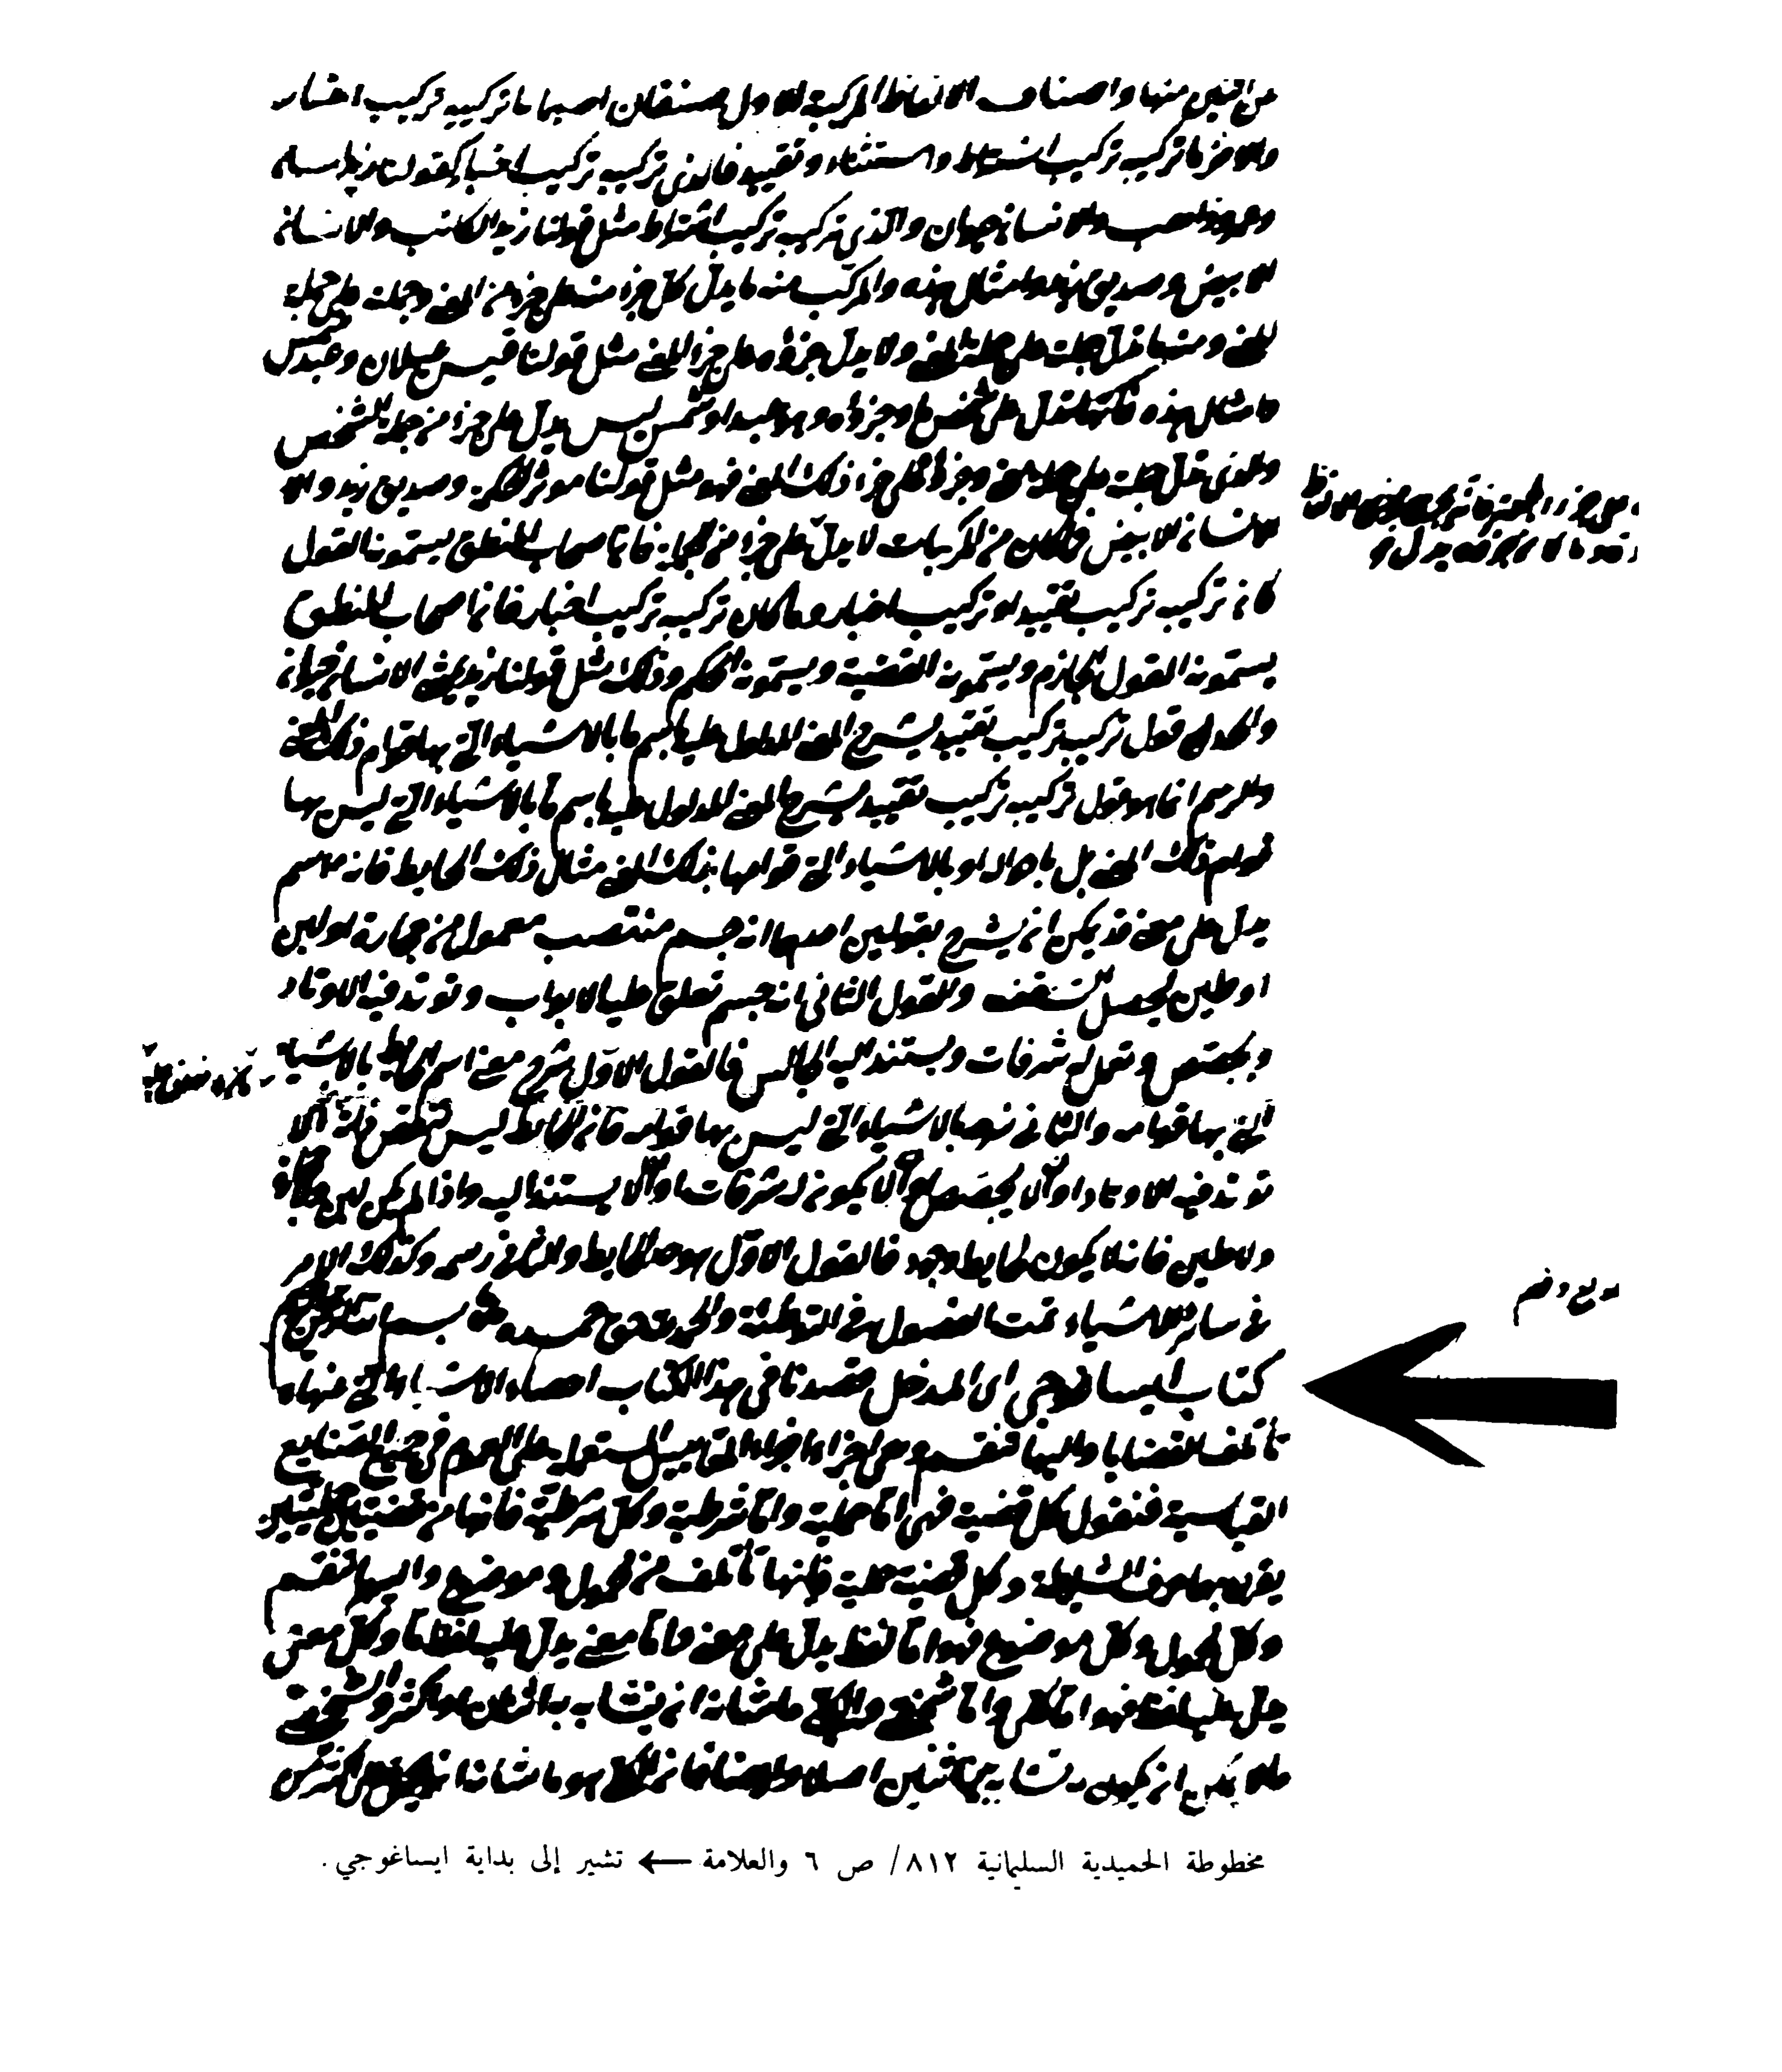 من اثنين منها واصناف الالفاظ المركبة الاول صنفان احدها ما تركيبه تركيب اخبار
والاخر ما تركيبه تركيب اشتراط واستثناء وتقييد فالذي تركيبه تركيب اخبار كقولنا زيد
وعمرو ذاهب والانسان حيوان والذي تركيبه تركيب اشتراط مثل قولنا زيد الكاتب والانسان
الابيض وصديق زيد وامثال هذه والمركب منه ما يدل كل جزء منه على جزء من المعنى وجملته على جملة
المعنى ومنها ما تدل جملته على جملة المعنى ولا يدل جزؤه على جزء المعنى مثل قولنا قيس عيلان وعبد شمس
وامثال هذه فانها تدل على شخص ما وجزؤه وهو عبد او شمس ليس يدل على جزء من جملة الشخص
والذي تدل جملته على جملة المعنى وجزؤه على جزء ذلك المعنى فهو مثل قولنا موثر الحكمة وصديق زيد و
الانسان الابيض من المركبات لا يدل على جزء من الجملة فان اصحاب المنطق يسمونه القول
كان تركيبه تركيب تقييد او تركيب اخبار وما كان تركيبه تركيب اخبار فان اصحاب المنطق
يسمونه القول الجازم ويسمونه القضية ويسمونه الحكم وذلك مثل قولنا زيد الانسان حيوان
والحد هو قول تركيبه تركيب تقييد يشرح المعنى المدلول عليه باسم ما بالاشياء التي بها قوام ذلك المعنى
والرسم انما هو قول تركيبه تركيب تقييد يشرح المعنى المدلول عليه باسم ما بالاشياء التي ليس بها
قوام ذلك المعنى بل باحواله او بالاشياء التي قوامها بذلك المعنى مثال ذلك الحايط فانه اسم
يدل على معنى قد يمكن ان يشرح بقولين احدهما انه جسم منتصب معمول من حجارة او لبن
او طين ليحمل السقف والقول الثاني انه جسم تعلق عليه الابواب وتوتد فيه الاوتاد
ويجصص وتعمل له شرفات ويستند اليه الجالس فالقول الاول شرح معنى اسم الحايط بالاشياء
التي بها قوامه والثاني شرحه بالاشياء التي ليس بها قوامه فان الحايط ليس الا
توتد فيه الاوتاد او الا يجصص او الا يكون له شرفات او الا يستند اليه واذا لم يكن لبن
ولا طين فانه لا يكون الحايط وجود فالقول الاول هو حد الحايط والثاني رسمه وكذلك الامر
في ساير الاشياء تمت الفصول في التوطئة والحمد لله حق حمده
كتاب ايساغوجي اي المدخل قصدنا في هذا الكتاب احصاء الاشياء التي عنها
تأتلف القضايا واليها تنقسم وهي اجزاء اجزاء المقاييس المستعملة على العموم في جميع الصنايع
القياسية فنقول كل قضية فهي اما حملية واما شرطية وكل شرطية فانها من قضيتين حمليتين
يقرن بهما حرف الشريطة وكل قضية حملية فانها تأتلف من محمول وموضوع واليها تنقسم
وكل محمول وكل موضوع فهو اما لفظ يدل على معنى واما معنى يدل عليه لفظ ما وكل معنى
يدل عليه لفظ فهو اما كلي واما شخصي والكلي ما شانه ان يتشابه به اثنان او اكثر والشخصي
ما لا يمكن ان يكون به تشابه بين اثنين اصلا وايضا فان الكلي هو ما شانه
مخطوطة الحميدية السليمانية ٨١٢/ ص ٦ والعلامة ← تشير إلى بداية ايساغوجي.